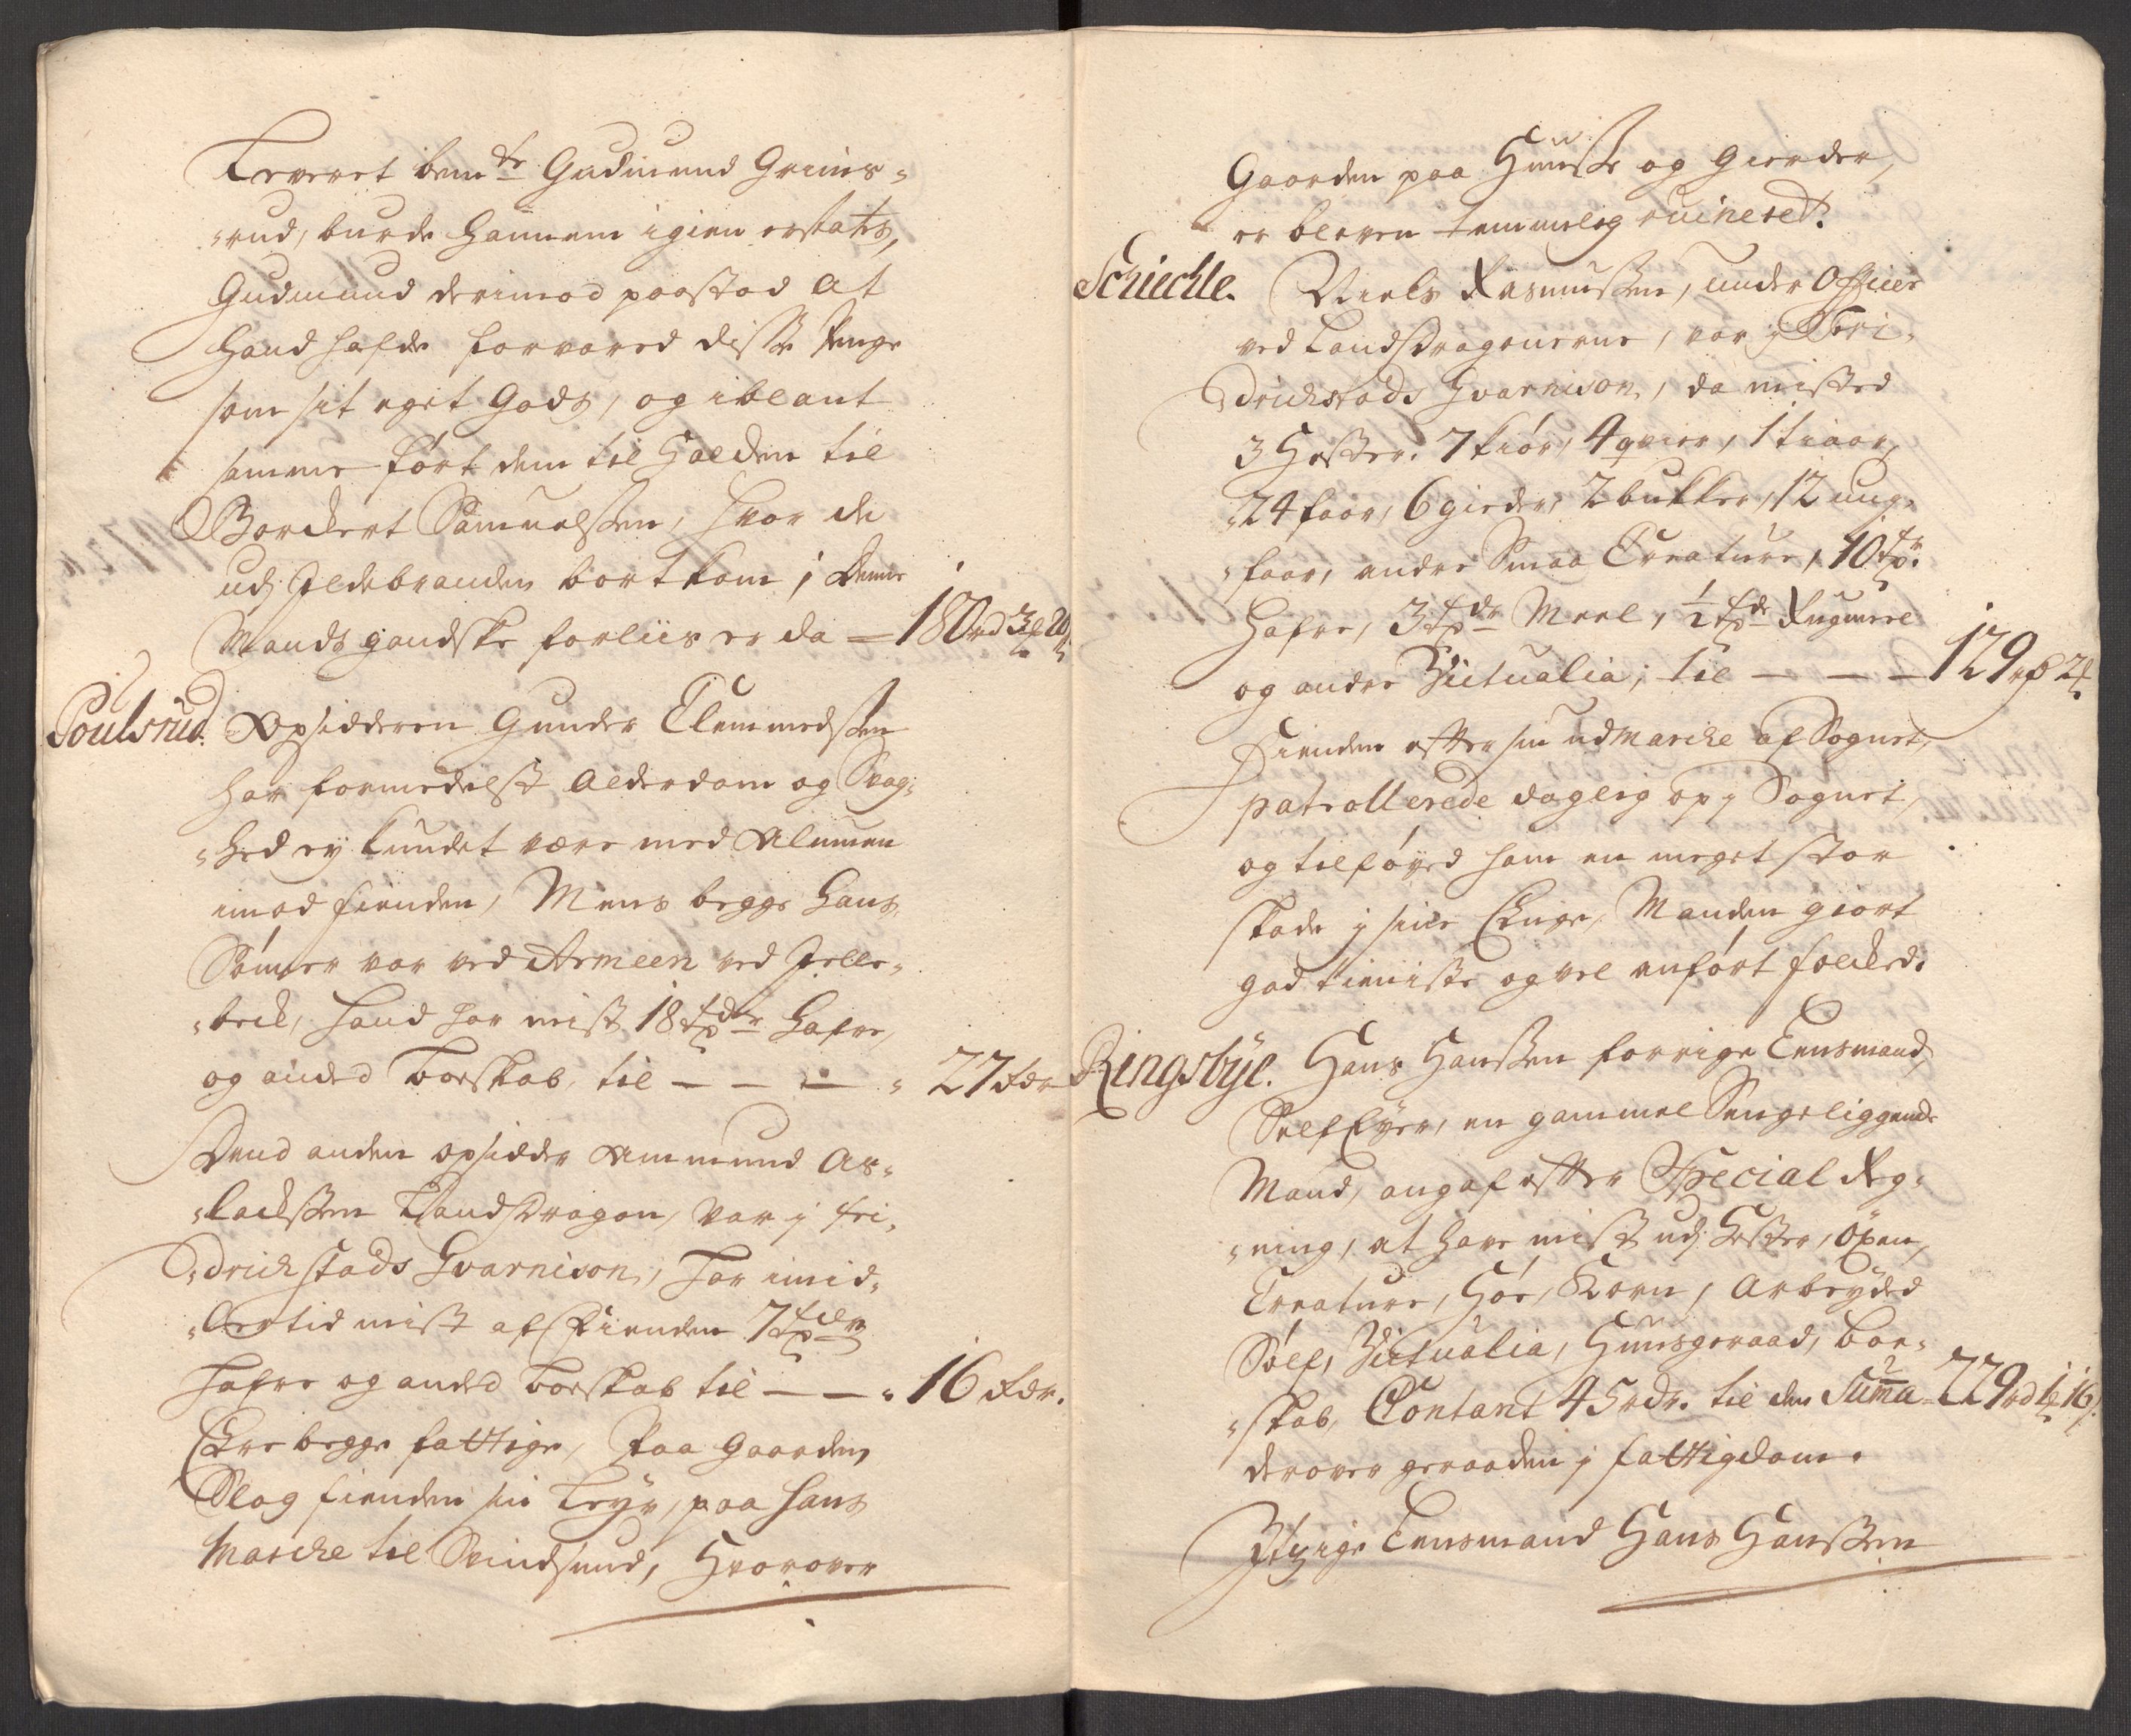 Leveret bem.te Gudmund Grims-
-rud, burde hannem igien erstates,
Gudmund derimod paastod at
hand hafde forvared disse Penge
som sit eget Gods, og iblant
samme ført dem til Halden til
Borckert Samuelsen, hvor de
udj Ildebranden bortkom, denne
Mands gandske forliis er da = 180 rd 3 ₰ 20
Poulsrud. Opsidderen Gunder Clemmedsen
har formedelst Alderdom og Svag-
-hed ej kundet være med Almuen
imod fienden, Mens begge hans
Sønner var ved Armeen ved Jelle-
-beck, hand har mist 18 tdr Hafre,
og anded boeskab, til — — — 27 rdr
Dend anden opsidder Ammund As-
-lacksen LandDragon, var j Fri-
-drichstads Gvarnison, har imid-
-lertid mist af Fienden 7 tdr
Hafre og anded boeskab til — — 16 rdr.
Ere begge fattige, Paa Gaarden
Slog fienden sin Leyr, paa hans
Marche til Svindsund, Hvorover
Gaarden paa Huuse og Gierder,
er bleven temmelig ruineret.
Schiechle. Niels Rasmussen, under Officer
ved Landdragonerne, var j Fri-
-drichstads Gvarnison, da misted
3 Hester, 7 kiør, 4 qvier, 1 tiaar,
24 faar, 6 gieder, 2 bukker, 12 ung-
-faar, andre Smaa Creature, 10 tr
Hafre, 3 tdr Meel, ½ tde Rugmeel
og andre Victualia, til — — — 129 rd 2
Fienden efter sin udmarche af Sognet,
patrollerede daglig op j Sognet,
og tilføyed ham en meget stor
skade j sine Enge, Manden giort
god tieniste og vel anført folcked.
Ringsbye. Hans Hansen forrige Lensmand,
SelfEyer, en gammel Sengeliggende
Mand, angaf efter Special Reg-
-ning, at have mist udj Hester, Oxen,
Creature, Høe, Korn, Arbeyded
Sølf, Victualia, Huusgeraad, boe-
-skab, Contant 45 rdr. til den Suma 229 rd 1 16
derover geraaden j fattigdom.
Itzige Lensmand Hans Hansen